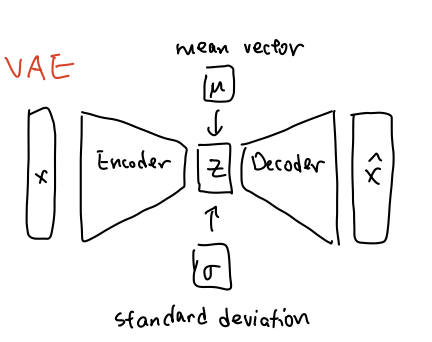 mean vector
VAE
μ
x
Encoder
z
Decoder
x̂
σ
standard deviation